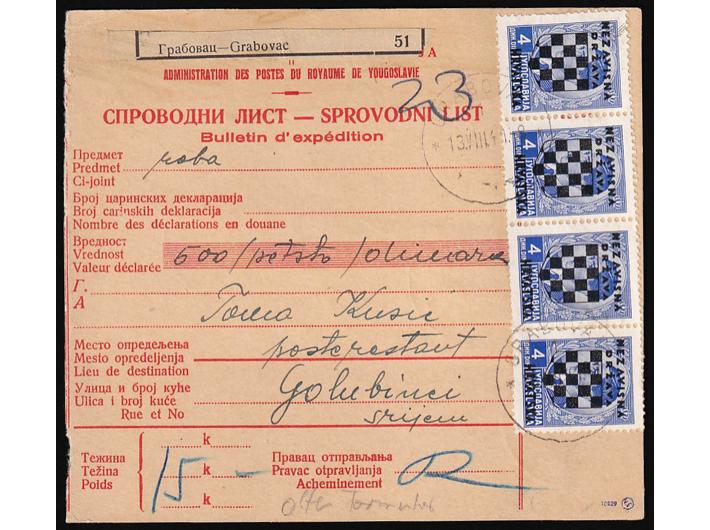 Грабовац—Grabovac 51
А
ADMINISTRATION DES POSTES DU ROYAUME DE YOUGOSLAVIE
23
СПРОВОДНИ ЛИСТ — SPROVODNI LIST
Bulletin d'expédition
Предмет
Predmet roba
Ci-joint
Број царинских декларација
Broj carinskih deklaracija
Nombre des déclarations en douane
Вредност
Vrednost 500/petsto/dinara
Valeur déclarée
Г.
А Toma Kusic
Место опредељења postrestant
Mesto opredeljenja
Lieu de destination
Улица и број куће Golubinci
Ulica i broj kuće srijem
Rue et No
k
Тежина Правац отправљања
Težina k Pravac otpravljanja
Poids 15 - Acheminement R
k
4 ЈУГОСЛАВИЈА
NEZAVISNA
DRŽAVA
HRVATSKA
4 ЈУГОСЛАВИЈА
NEZAVISNA
DRŽAVA
HRVATSKA
4 ЈУГОСЛАВИЈА
NEZAVISNA
DRŽAVA
HRVATSKA
4 ЈУГОСЛАВИЈА
NEZAVISNA
DRŽAVA
HRVATSKA